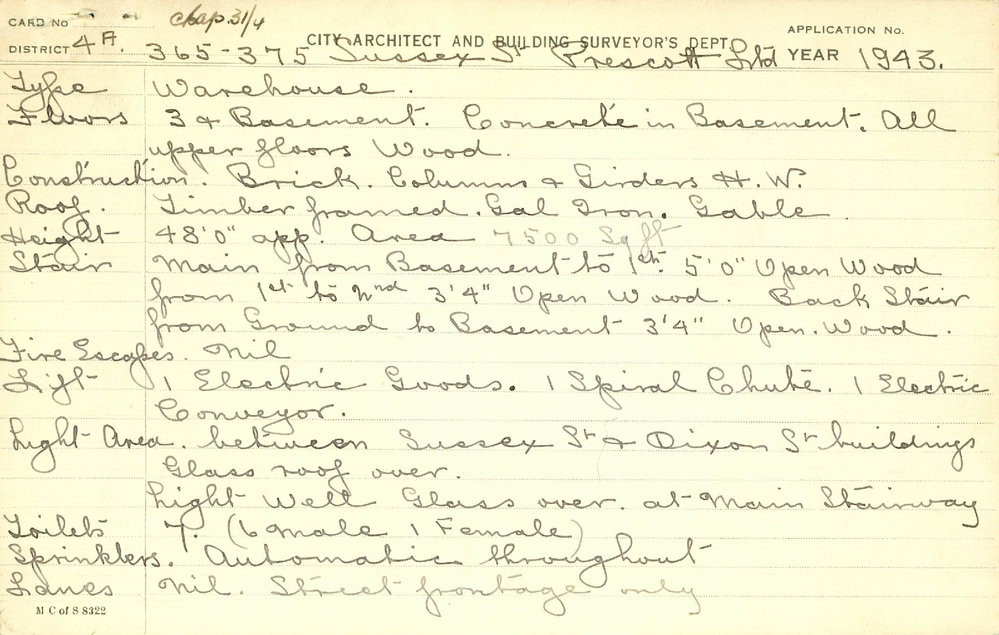 CARD No chap. 31/4
CITY ARCHITECT AND BUILDING SURVEYOR'S DEPT. APPLICATION No.
DISTRICT 4A. 365-375 Sussex St Prescott Ltd YEAR 1943.
Type Warehouse.
Floors 3 & Basement. Concrete in Basement. All
upper floors Wood.
Construction. Brick. Columns & Girders H.W.
Roof. Timber framed. Gal Iron. Gable.
Height 48'0" app. Area 7500 Sq ft
Stair Main from Basement to 1st. 5'0" Open Wood
from 1st to 2nd 3'4" Open Wood. Back Stair
from Ground to Basement 3'4" Open. Wood.
Fire Escapes. Nil
Lift 1 Electric Goods. 1 Spiral Chute. 1 Electric
Conveyor.
Light Area. between Sussex St & Dixon St buildings
Glass roof over.
Light Well Glass over. at Main Stairway
Toilets 7. (6 Male 1 Female)
Sprinklers. Automatic throughout
Lanes Nil. Street frontage only
M C of S 8322